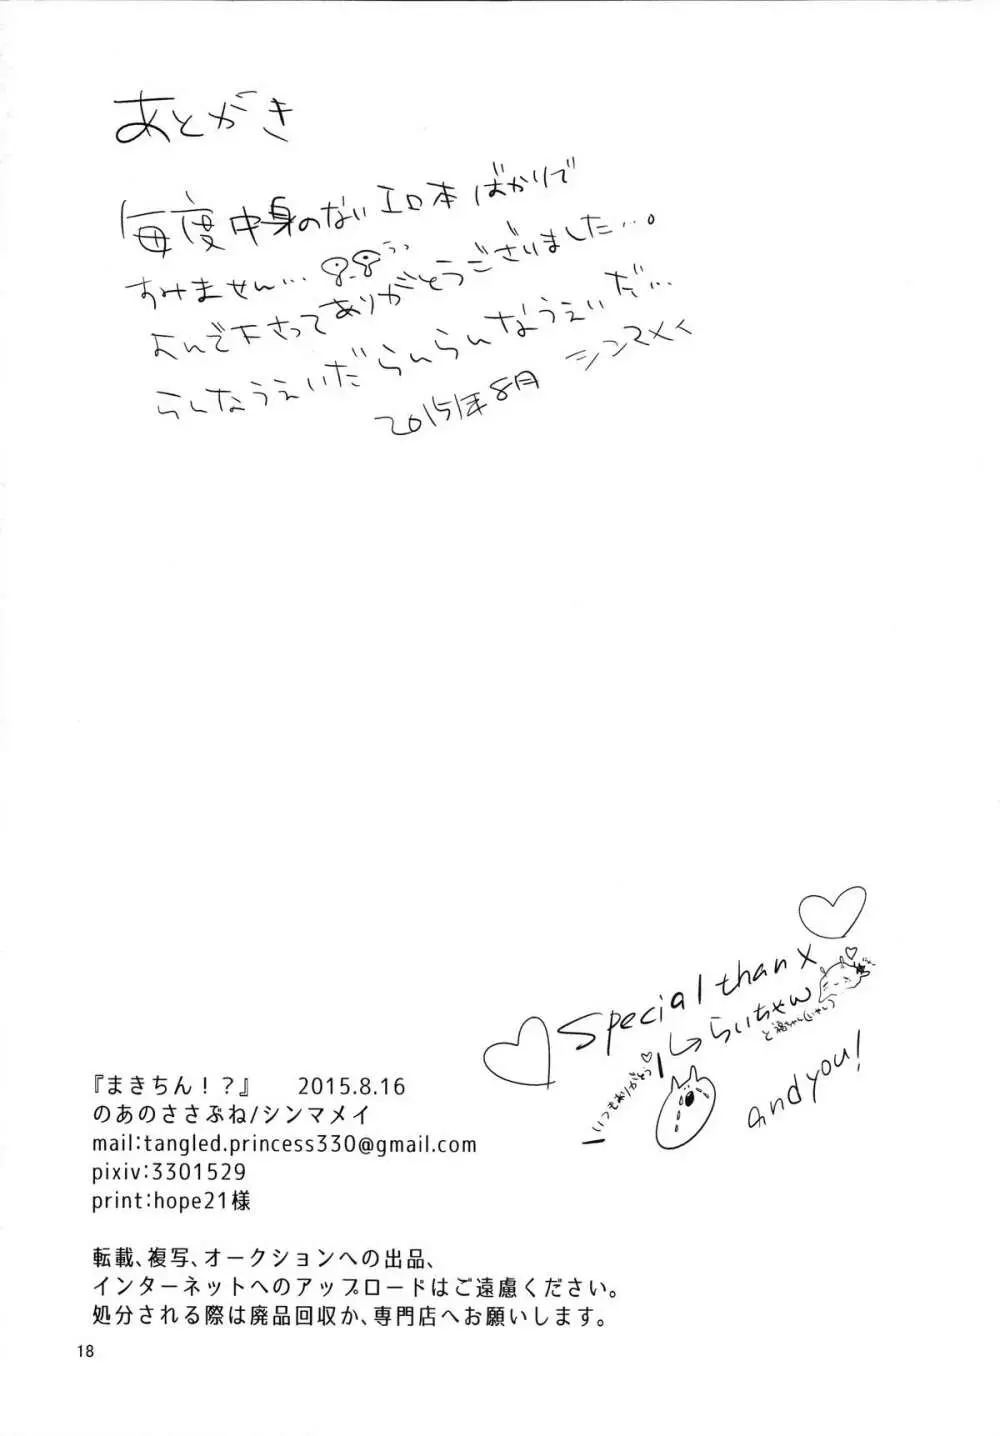 あとがき
毎度中身のないエロ本ばかりで
すみません…
よんで下さってありがとうございました…。
らんなうぇいだらんらんなうぇいだ…
2015年8月 シンマメイ
Special thanx
らいちゃん
いつもありがとう
and you!
『まきちん！？』 2015.8.16
のあのささぶね/シンマメイ
mail:tangled.princess330@gmail.com
pixiv:3301529
print:hope21様
転載、複写、オークションへの出品、
インターネットへのアップロードはご遠慮ください。
処分される際は廃品回収か、専門店へお願いします。
18